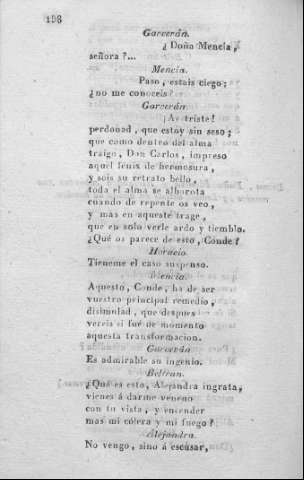 198
Garcerán.
¿Doña Mencía,
señora?...
Mencía.
Paso, estais ciego;
¿no me conoceis?
Garcerán.
¡Ay triste!
perdonad, que estoy sin seso;
que como dentro del alma
traigo, Don Carlos, impreso
aquel fenix de hermosura,
y sois su retrato bello,
toda el alma se alborota
cuando de repente os veo,
y mas en aqueste trage,
que en solo verle ardo y tiemblo.
¿Qué os parece de esto, Conde?
Horacio.
Tieneme el caso suspenso.
Mencía.
Aquesto, Conde, ha de ser
vuestro principal remedio,
disimulad, que despues
vereis si fué de momento
aquesta transformacion.
Garcerán
Es admirable su ingenio.
Beltran.
¿Qué es esto, Alejandra ingrata,
vienes á darme veneno
con tu vista, y encender
mas mi cólera y mi fuego?
Alejandra.
No vengo, sino á escusar,